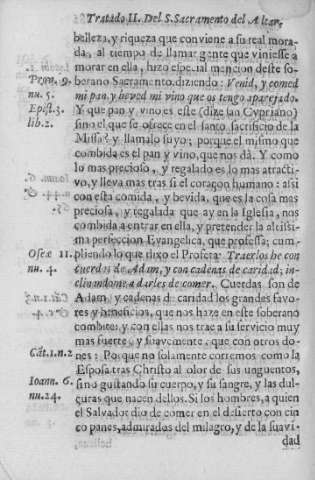 Tratado II. Del S. Sacramento del Altar,
belleza, y riqueza que conviene a su real mora-
da, al tiempo de llamar gente que viniesse a
morar en ella, hizo especial mencion deste so-
Prou. 9. berano Sacramento, diziendo: Venid, y comed
nu. 5. mi pan, y beved mi vino que os tengo aparejado.
Epist. 3. Y que pan y vino es este (dize san Cypriano)
lib. 2. sino el que se ofrece en el santo sacrificio de la
Missa? y llamalo suyo; porque el mismo que
combida es el pan y vino, que nos dà. Y como
lo mas precioso, y regalado es lo mas atracti-
vo, y lleva mas tras si el coraçon humano: assi
con esta comida, y bevida, que es la cosa mas
preciosa, y regalada que ay en la Iglesia, nos
combida a entrar en ella, y pretender la altissi-
ma perfeccion Evangelica, que professa; cum-
Oseæ 11. pliendo lo que dixo el Profeta: Traerlos he con
nu. 4. cuerdas de Adam, y con cadenas de caridad, in-
clinandome a darles de comer. Cuerdas son de
Adam, y cadenas de caridad los grandes favo-
res y beneficios, que nos haze en este soberano
combite; y con ellas nos trae a su servicio muy
mas fuerte, y suavemente, que con otros do-
Cāt. 1. n. 2 nes: Porque no solamente corremos como la
Esposa tras Christo al olor de sus unguentos,
Ioann. 6. sino gustando su cuerpo, y su sangre, y las dul-
nu. 24. çuras que nacen dellos. Si los hombres, a quien
el Salvador dio de comer en el desierto con cin
co panes, admirados del milagro, y de la suavi-
dad